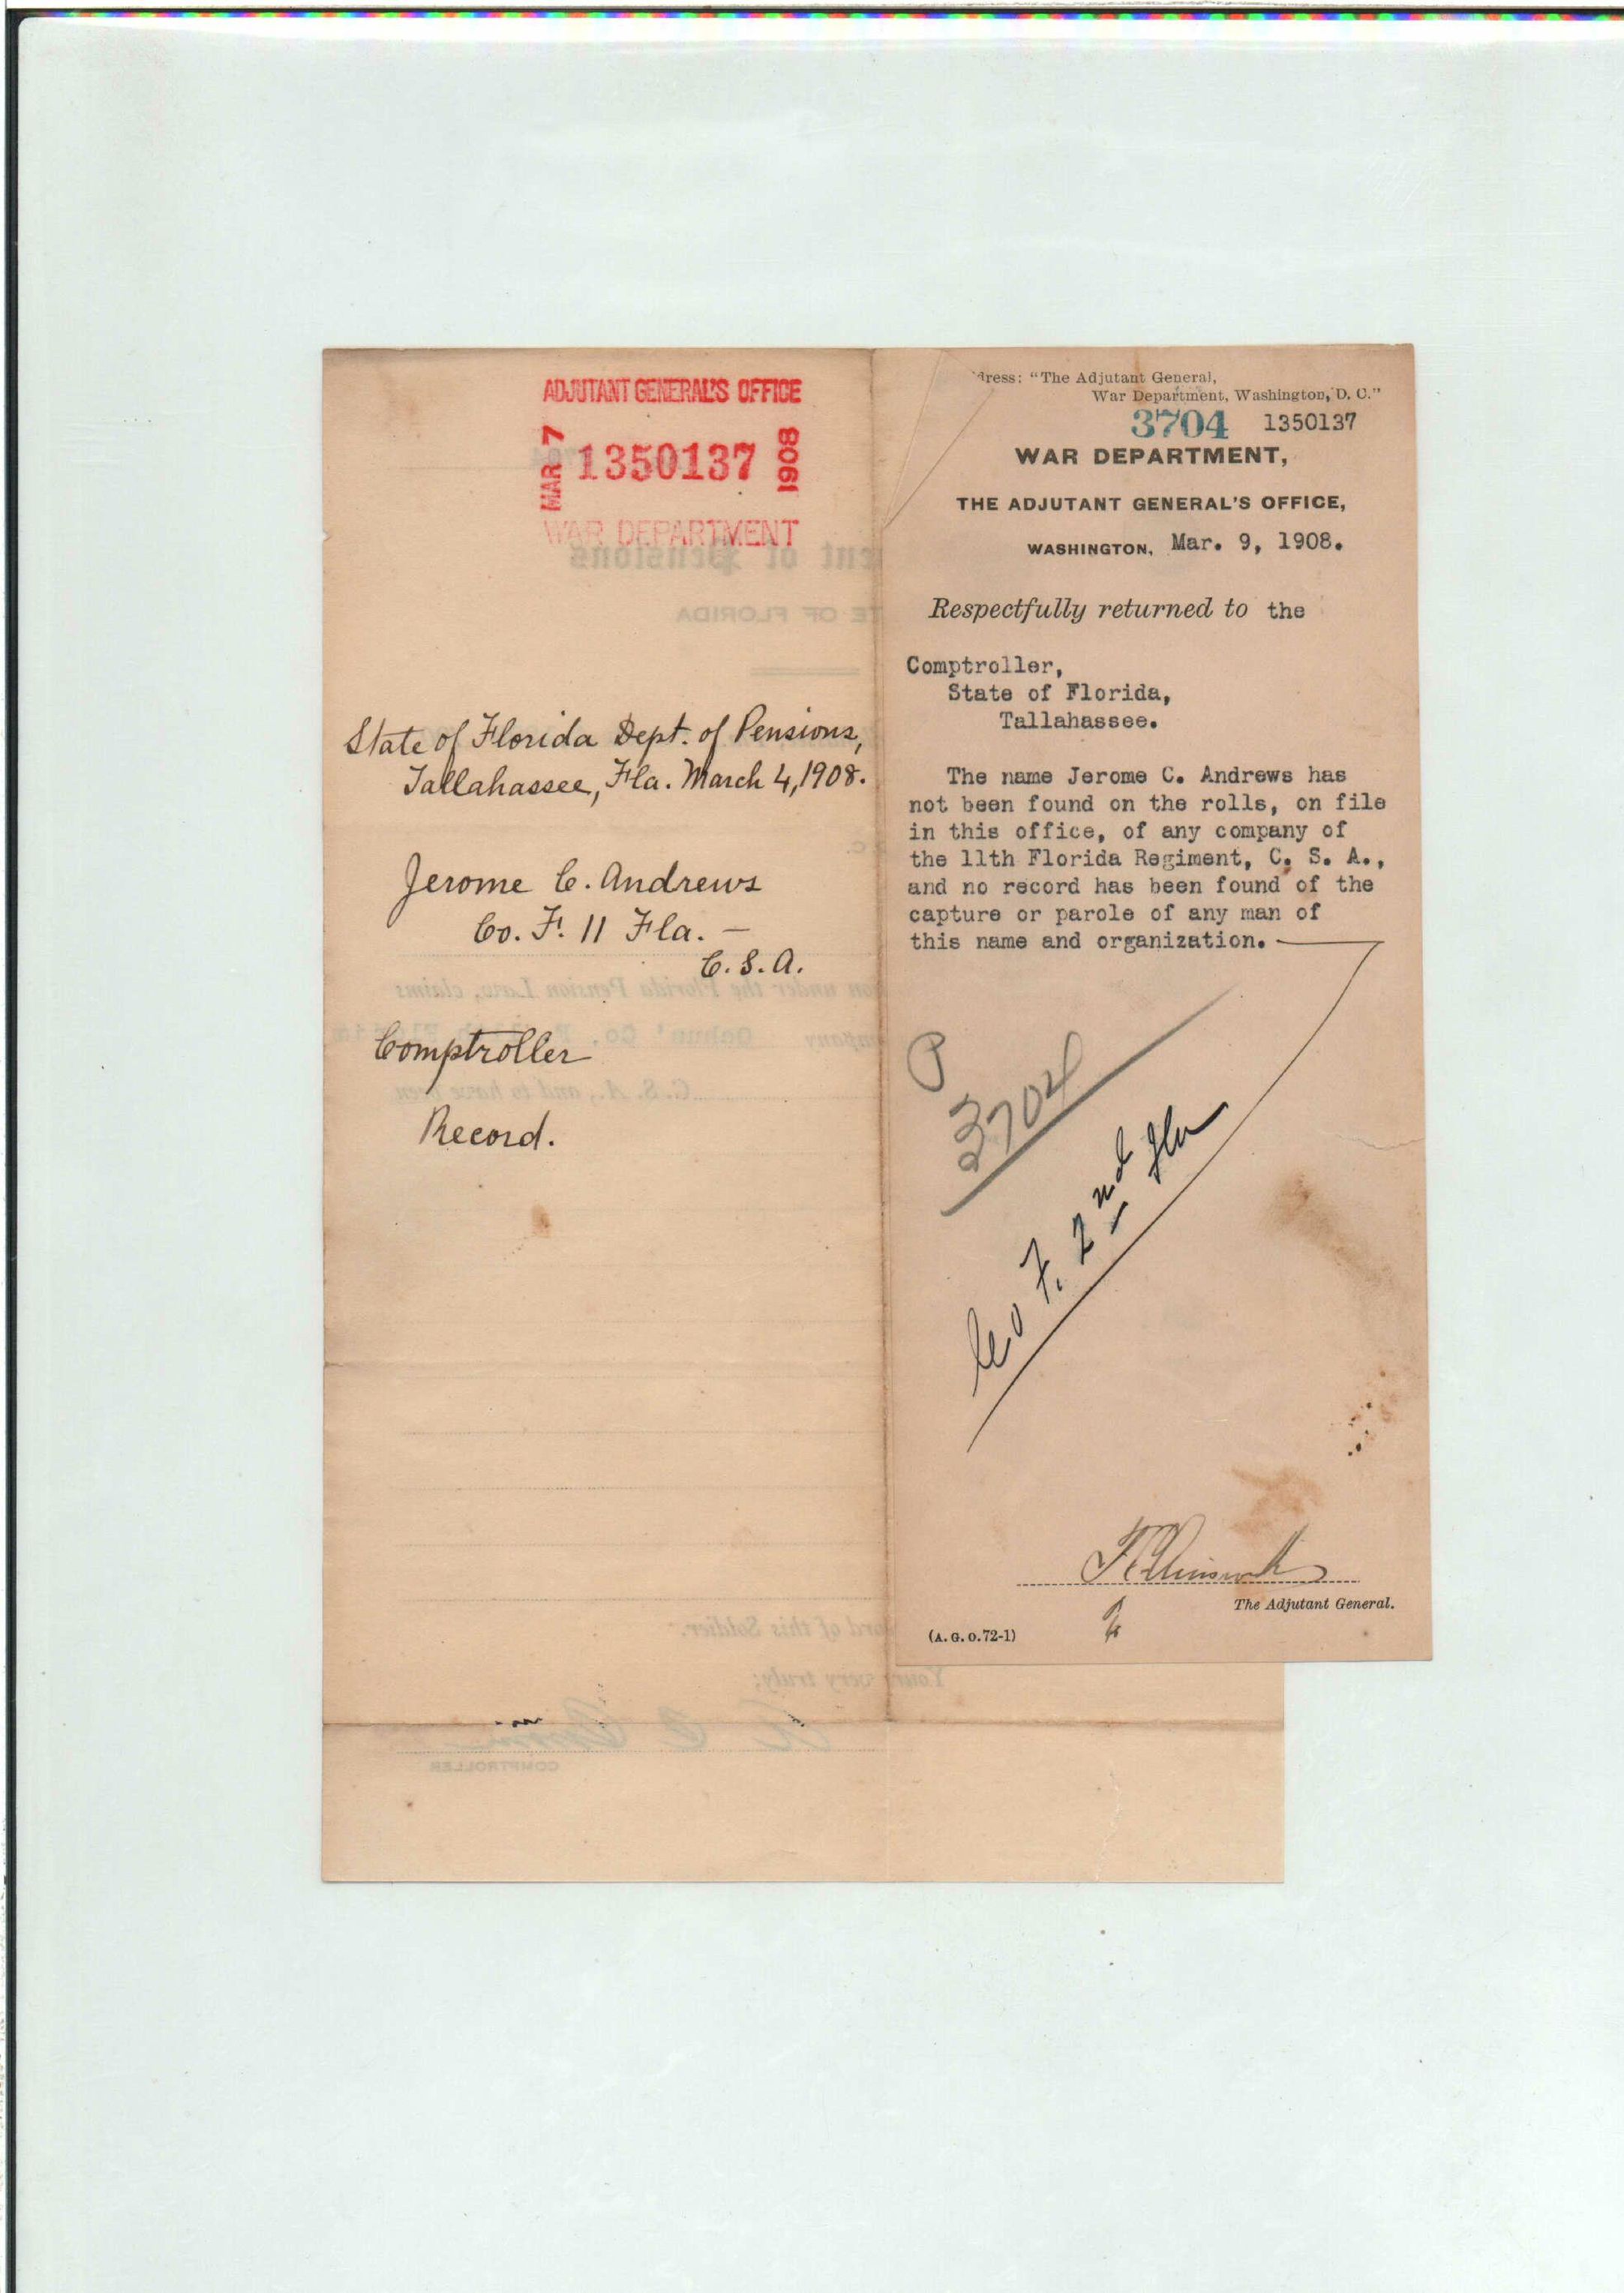 ADJUTANT GENERAL'S OFFICE
MAR 7 1350137 1908
WAR DEPARTMENT
State of Florida Dept. of Pensions,
Tallahassee, Fla. March 4, 1908.
Jerome C. Andrews
Co. F. 11 Fla. —
C. S. A.
Comptroller
Record.
dress: "The Adjutant General,
War Department, Washington, D. C."
3704 1350137
WAR DEPARTMENT,
THE ADJUTANT GENERAL'S OFFICE,
WASHINGTON, Mar. 9, 1908.
Respectfully returned to the
Comptroller,
State of Florida,
Tallahassee.
The name Jerome C. Andrews has
not been found on the rolls, on file
in this office, of any company of
the 11th Florida Regiment, C. S. A.,
and no record has been found of the
capture or parole of any man of
this name and organization.
P
3704
Co F. 2nd Fla
The Adjutant General.
(A. G. O. 72-1)